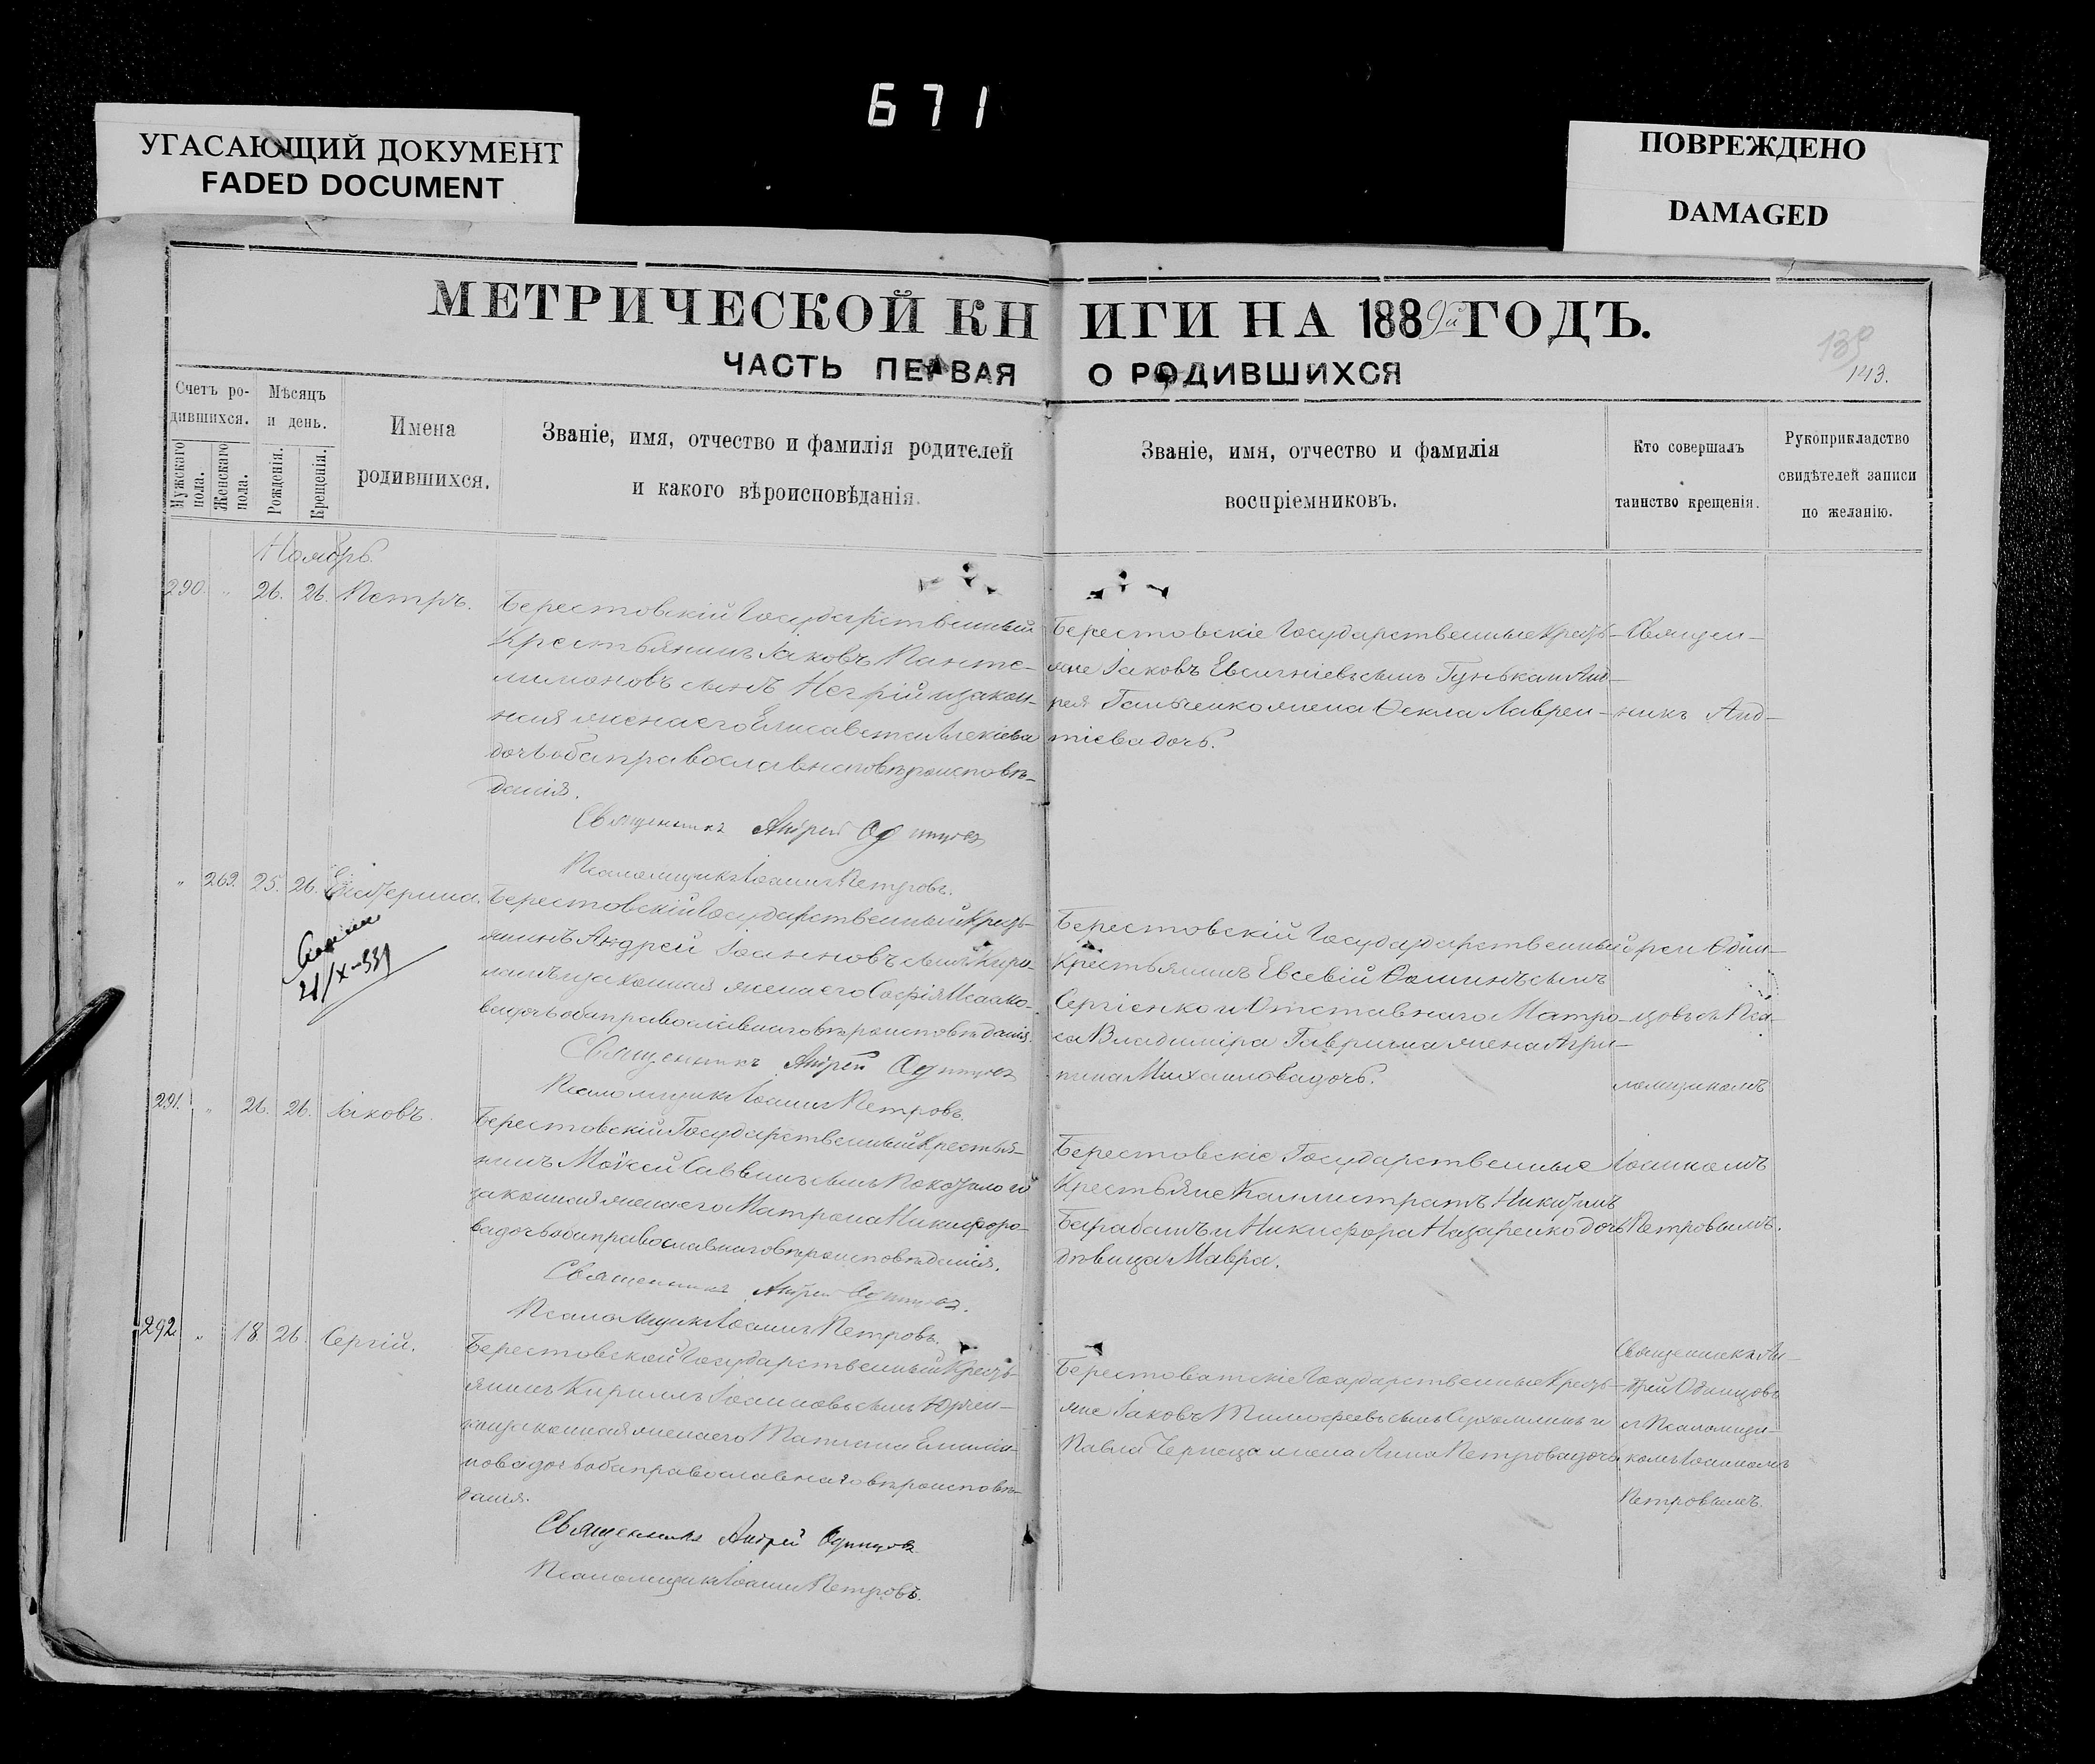 671
УГАСАЮЩИЙ ДОКУМЕНТ
FADED DOCUMENT
ПОВРЕЖДЕНО
DAMAGED
МЕТРИЧЕСКОЙ КНИГИ НА 1889й ГОДЪ.
ЧАСТЬ ПЕРВАЯ О РОДИВШИХСЯ
139
143.
Счетъ родившихся.
Мужскаго пола.
Женскаго пола.
Мѣсяцъ и день.
Рожденія.
Крещенія.
Имена
родившихся.
Званіе, имя, отчество и фамилія родителей
и какого вѣроисповѣданія.
Званіе, имя, отчество и фамилія
воспріемниковъ.
Кто совершалъ
таинство крещенія.
Рукоприкладство
свидѣтелей записи
по желанію.
Ноябрь.
290. " 26. 26. Петръ.
Берестовскій Государственный
Крестьянинъ Іаковъ Панте-
лимоновъ сынъ Негрій и закон-
ная жена его Елисавета
дочь оба православнаго вѣроисповѣ-
данія.
Священникъ Андрей Одинцовъ
Псаломщикъ Іоаннъ Петровъ.
Берестовскіе Государственные Кресть-
яне Іаковъ Евсигніевъ сынъ Гунька и Анд-
рея Ганченко жена Ѳекла Лаврен-
тіева дочь.
Священ-
никъ Анд-
" 269. 25. 26. Екатерина.
21/X-
Берестовскій Государственный Кресть-
янинъ Андрей Іоанновъ сынъ
и законная жена его Софія Исаако-
ва дочь оба православнаго вѣроисповѣданія.
Священникъ Андрей Одинцовъ
Псаломщикъ Іоаннъ Петровъ.
Берестовскій Государственный
Крестьянинъ Евсевій Ѳоминъ сынъ
Сергіенко и Отставнаго Матро-
са Владиміра Гаврина жена Агри-
пина Михаилова дочь.
рей Один-
цовъ съ Пса-
ломщикомъ
291. " 26. 26. Іаковъ.
Берестовскій Государственный Крестья-
нинъ Моѵсей Саввинъ сынъ и
законная жена его Матрона Никифоро-
ва дочь оба православнаго вѣроисповѣданія.
Священникъ Андрей Одинцовъ.
Псаломщикъ Іоаннъ Петровъ.
Берестовскіе Государственные
Крестьяне Каллистратъ Никитинъ
Барабашъ и Никифора Назаренко дочь
дѣвица Мавра.
Іоанномъ
Петровымъ.
292. " 18. 26. Сергій.
Берестовской Государственный Кресть-
янинъ Кириллъ Іоанновъ сынъ
и законная жена его Татіана Емиліа-
нова дочь оба православнаго вѣроисповѣ-
данія.
Священникъ Андрей Одинцовъ
Псаломщикъ Іоаннъ Петровъ.
Государственные Кресть-
яне Іаковъ Тимофеевъ сынъ Сухомлинъ и
Павла Чернеца жена Анна Петрова дочь.
Священникъ Ан-
дрей Одинцовъ
съ Псаломщи-
комъ Іоанномъ
Петровымъ.